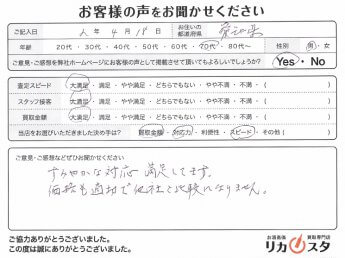 お客様の声をお聞かせください
ご記入日 年 4月18日 お住いの都道府県 愛知県
年齢 20代・30代・40代・50代・60代・70代・80代～ 性別 男・女
ご意見・ご感想を弊社ホームページにお客様の声として掲載させて頂いてもよろしいでしょうか? Yes・No
査定スピード 大満足・満足・やや満足・どちらでもない・やや不満・不満・( )
スタッフ接客 大満足・満足・やや満足・どちらでもない・やや不満・不満・( )
買取金額 大満足・満足・やや満足・どちらでもない・やや不満・不満・( )
当店をお選びいただきました決め手は? 買取金額・対応力・利便性・スピード・その他( )
ご意見・ご感想などぜひお聞かせください
すみやかな対応 満足してます。
価格も適切で他社と比較になりません。
ご協力ありがとうございました。
この度は誠にありがとうございました。
お酒高価買取専門店
リカスタ